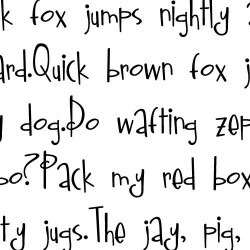 k fox jumps nightly
ard.Quick brown fox j
dog.Do wafting zep
bo?Pack my red box
ty jugs.The jay, pig,